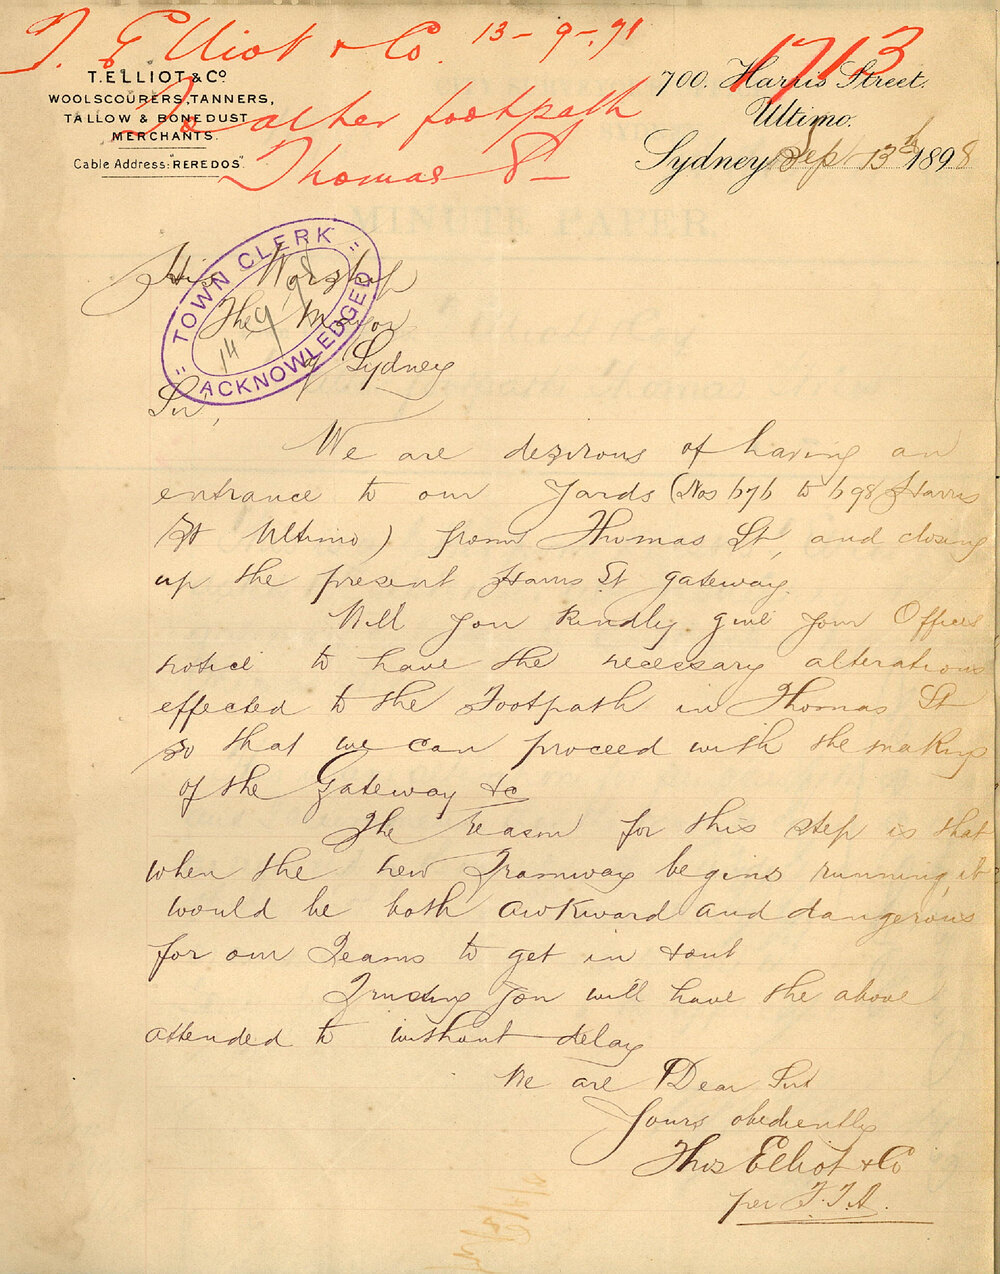 T. Elliot & Co. 13-9-98
1713
To alter footpath
Thomas St
T. ELLIOT & Co
WOOLSCOURERS, TANNERS,
TALLOW & BONEDUST
MERCHANTS.
Cable Address: "REREDOS".
700. Harris Street.
Ultimo.
Sydney Sept 13th 1898
TOWN CLERK
14 9 98
ACKNOWLEDGED
MINUTE PAPER
His Worship
The Mayor
of Sydney
Sir,
We are dezirous of having an
entrance to our Yards (Nos 676 to 698 Harris
St Ultimo) from Thomas St, and closing
up the present Harris St gateway.
Will you kindly give your Officers
notice to have the necessary alterations
effected to the Footpath in Thomas St
so that we can proceed with the making
of the Gateway &c
The reason for this step is that
when the new Tramway begins running, it
would be both awkward and dangerous
for our Teams to get in & out
Trusting you will have the above
attended to without delay
We are Dear Sir
Yours obediently
Thos Elliot & Co
per